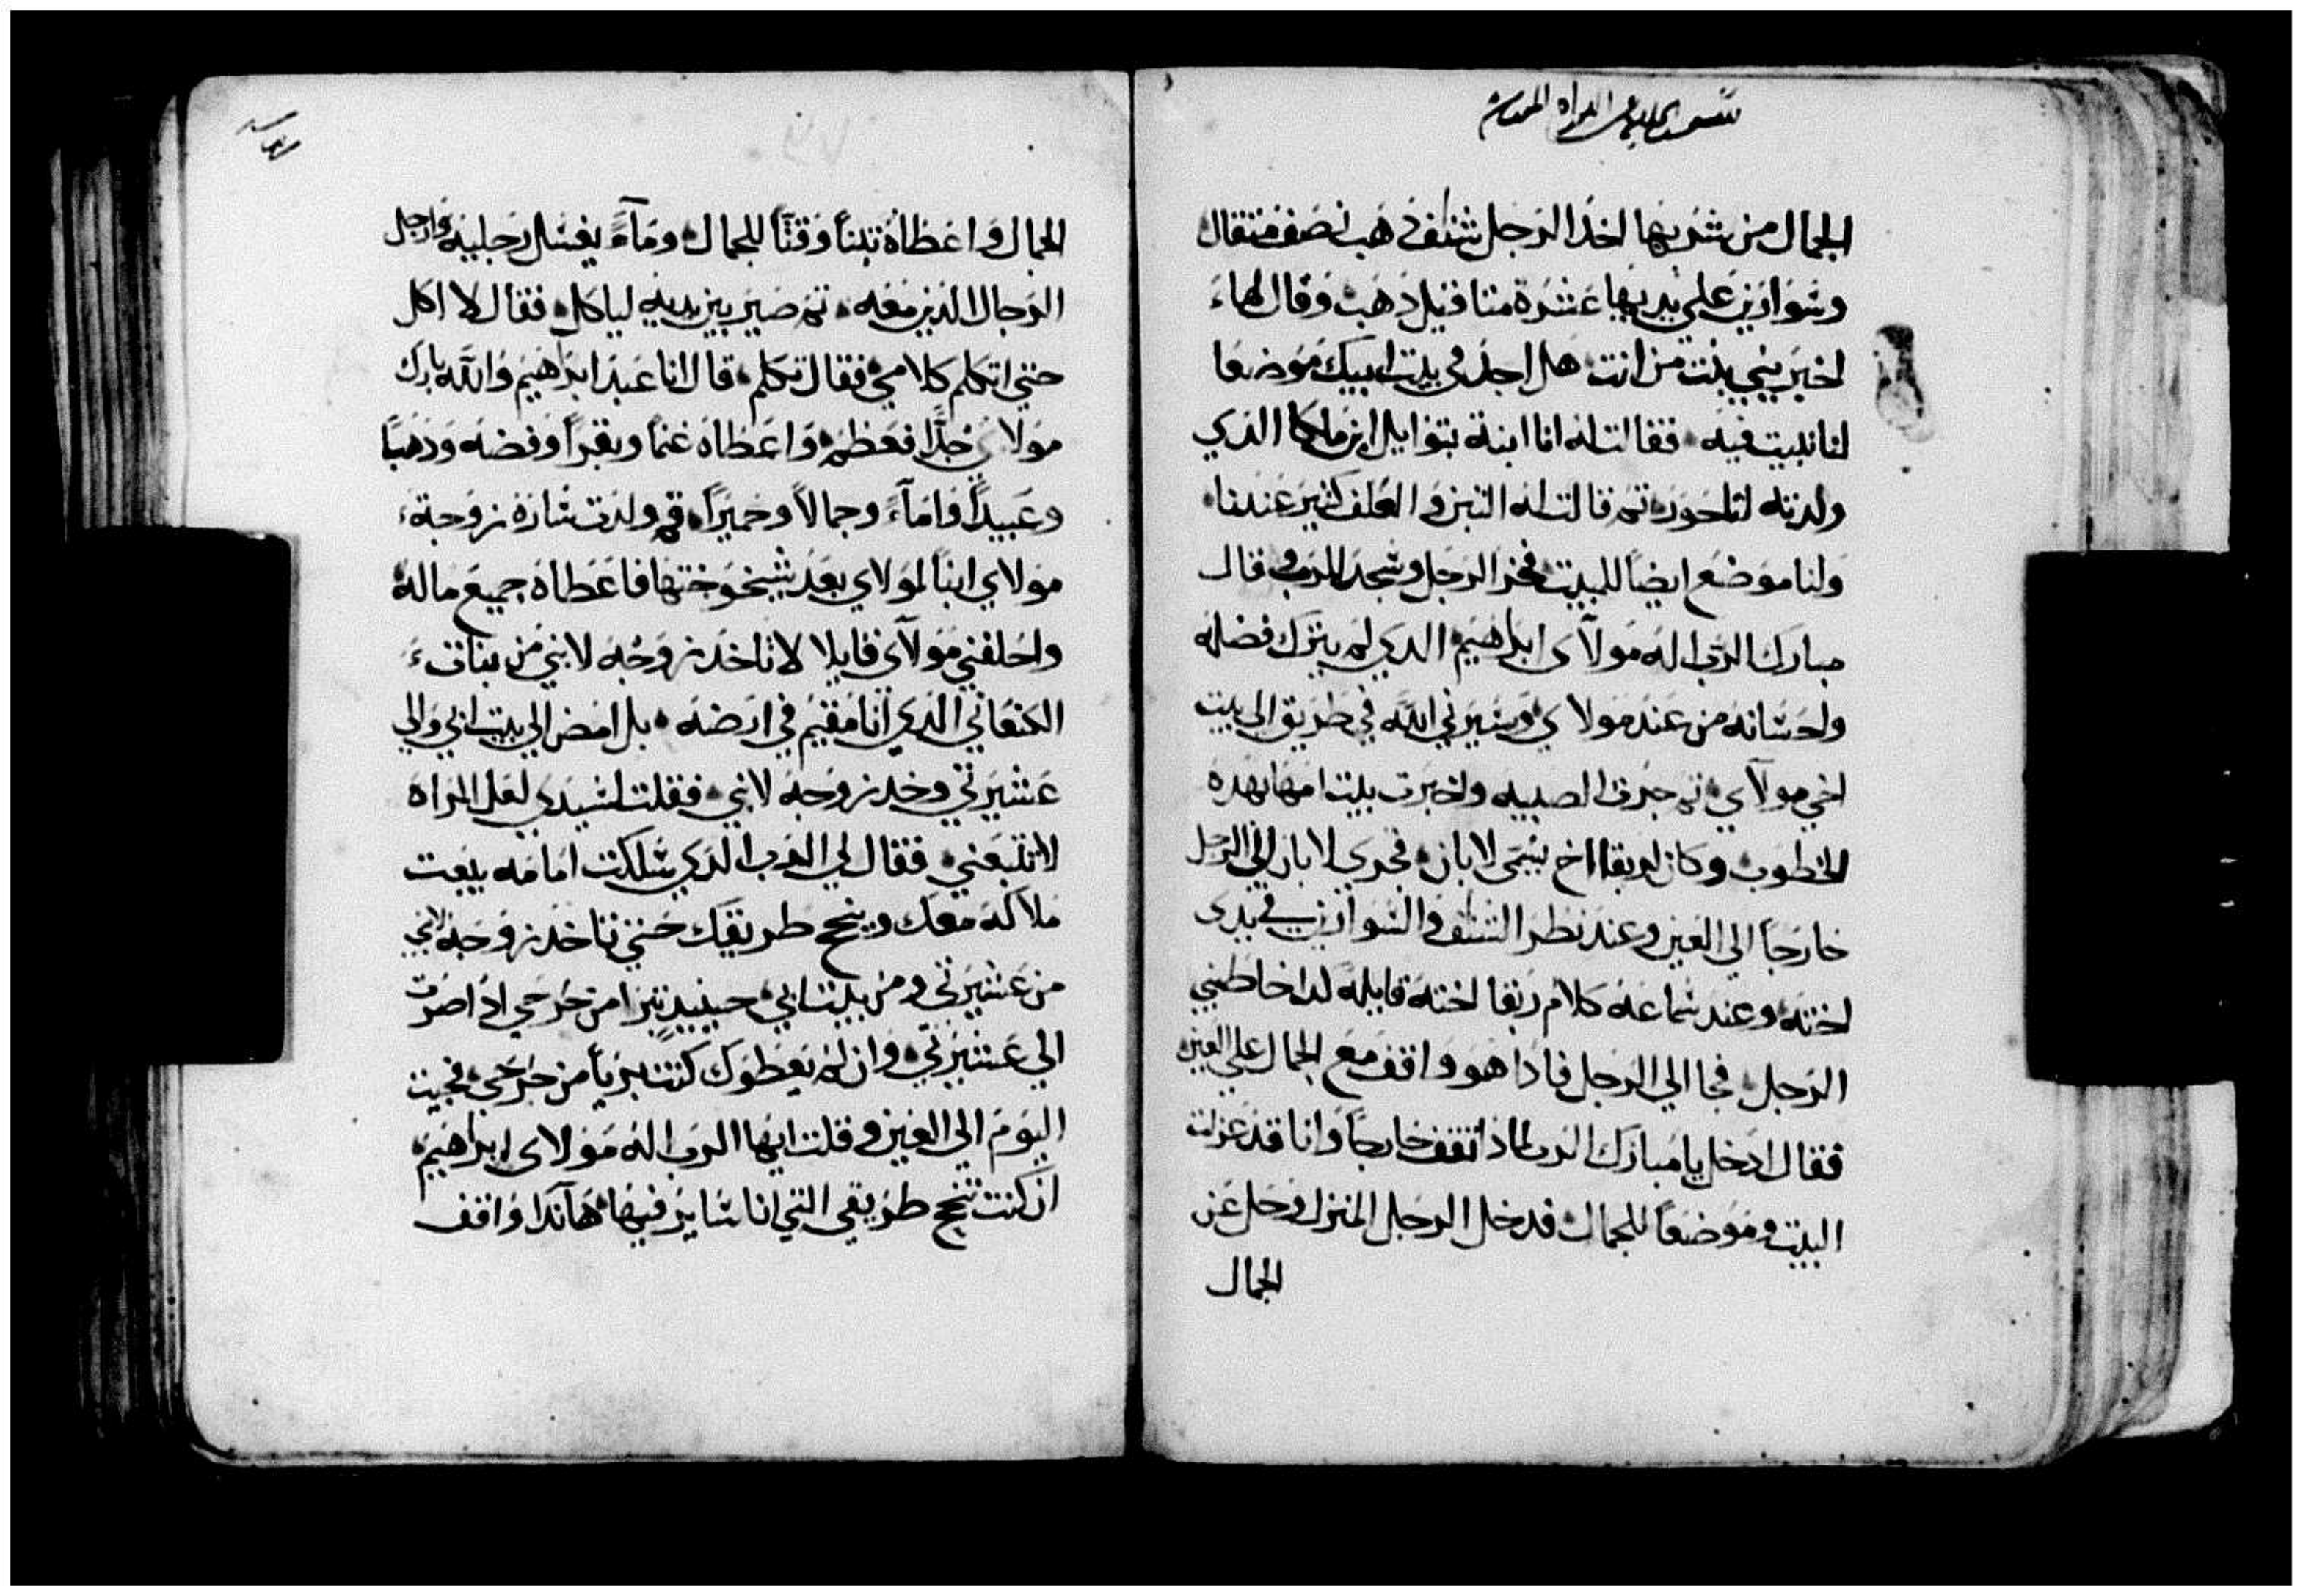 الجمال من شربها اخد الرجل شنف دهب نصف مثقال
وسوارين علي يديها عشرة مثاقيل دهب وقال لها
اخبريني بنت من انت هل اجد في بيت ابيك موضعا
لنا نبيت فيه فقالت له انا ابنة بتوايل ابن ملكا الدي
ولدته لناحور ثم قالت له التبن والعلف كثير عندنا
ولنا موضع ايضاً للمبيت فخر الرجل وسجد للرب وقال
مبارك الرب اله مولاى ابراهيم الدي لم يترك فضله
واحسانه من عند مولاي وسيرني الله في طريق الي بيت
اخي مولاي ثم جرت الصبيه واخبرت بيت امها بهده
الخطوب وكان لربقا اخ يسمى لابان فجري لابان الي الرجل
خارجاً الي العين وعند نظر الشنف والسوارين في يدى
اخته وعند سماعه كلام ربقا اخته قايله كدا خاطبني
الرجل فجا الي الرجل فادا هو واقف مع الجمال علي العين
فقال ادخل يا مبارك الرب لمادا تقف خارجاً وانا قد عزلت
البيت وموضعاً للجمال فدخل الرجل المنزل وحل عن
الجمال
الجمال واعطاه تبناً وقتاً للجمال وماءً يغسل رجليه وارجل
الرجال الدين معه ثم صير بين يديه لياكل فقال لا اكل
حتي اتكلم كلامي فقال تكلم قال انا عبد ابراهيم والله بارك
مولاي جداً فعظم واعطاه غنماً وبقراً وفضه ودهباً
وعبيداً واماءً وجمالاً وحميراً ثم ولدت ساره زوجة
مولاي ابناً لمولاي بعد شيخوختها فاعطاه جميع ماله
واحلفني مولاى قايلا لا تاخد زوجه لابني من بنات
الكنعاني الدي انا مقيم في ارضه بل امض الي بيت ابي والي
عشيرتي وخد زوجه لابني فقلت لسيدي لعل المراة
لا تتبعني فقال لي الرب الدي سلكت امامه يبعت
ملاكه معك وينجح طريقك حتي تاخد زوجه لابني
من عشيرتي ومن بيت ابي حينيدٍ تبرا من حرجي ادا صرت
الي عشيرتي وان لم يعطوك كنت برياً من حرجي فجيت
اليوم الي العين وقلت ايها الرب اله مولاى ابراهيم
ان كنت تنجح طريقي التي انا ساير فيها هاندا واقف